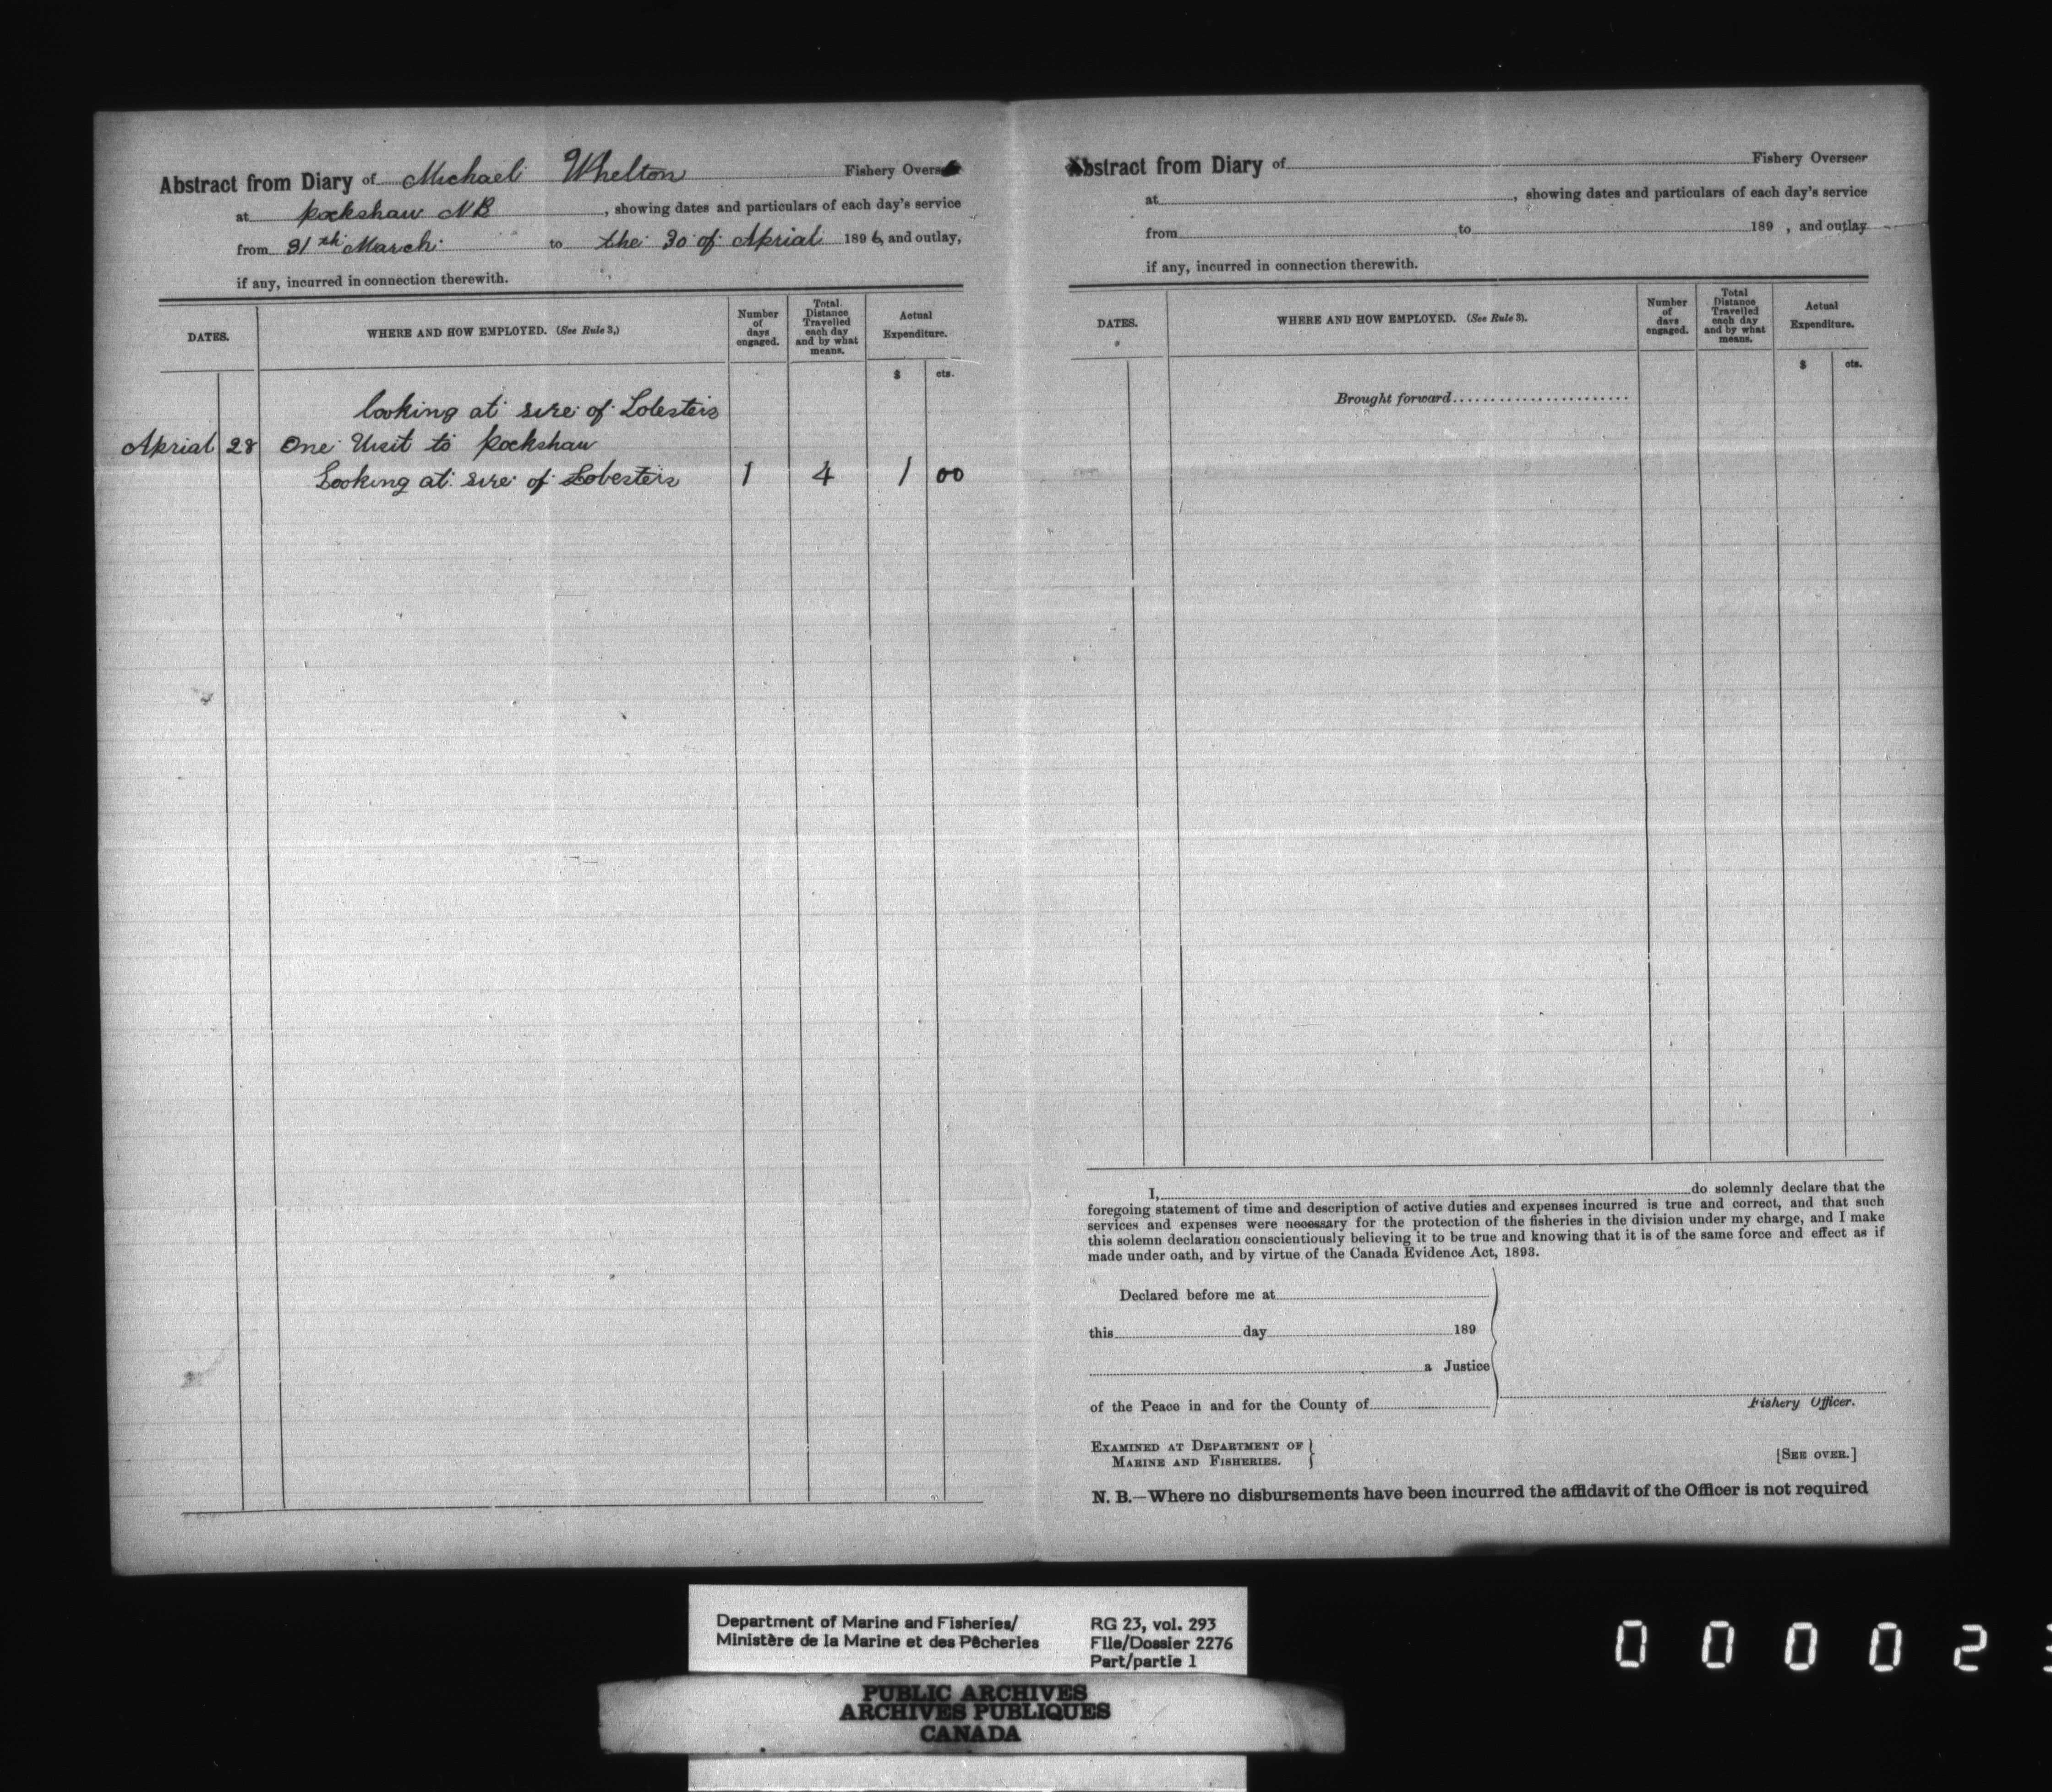 Abstract from Diary of Michael Whelton Fishery Overs
at Pockshaw NB, showing dates and particulars of each day's service
from 31th March to the 30 of Aprial 1896, and outlay,
if any, incurred in connection therewith.
DATES.
WHERE AND HOW EMPLOYED. (See Rule 3.)
Number
of
days
engaged.
Total
Distance
Travelled
each day
and by what
means.
Actual
Expenditure.
$ cts.
looking at size of Lobesters
Aprial 28 One Visit to Pockshaw
Looking at size of Lobesters 1 4 1 00
Abstract from Diary of Fishery Overseer
at , showing dates and particulars of each day's service
from to 189 , and outlay
if any, incurred in connection therewith.
DATES.
WHERE AND HOW EMPLOYED. (See Rule 3).
Number
of
days
engaged.
Total
Distance
Travelled
each day
and by what
means.
Actual
Expenditure.
$ cts.
Brought forward
I, do solemnly declare that the
foregoing statement of time and description of active duties and expenses incurred is true and correct, and that such
services and expenses were necessary for the protection of the fisheries in the division under my charge, and I make
this solemn declaration conscientiously believing it to be true and knowing that it is of the same force and effect as if
made under oath, and by virtue of the Canada Evidence Act, 1893.
Declared before me at
this day 189
a Justice
of the Peace in and for the County of
Fishery Officer.
EXAMINED AT DEPARTMENT OF
MARINE AND FISHERIES.
[SEE OVER.]
N. B.—Where no disbursements have been incurred the affidavit of the Officer is not required
Department of Marine and Fisheries/
Ministère de la Marine et des Pêcheries
RG 23, vol. 293
File/Dossier 2276
Part/partie 1
PUBLIC ARCHIVES
ARCHIVES PUBLIQUES
CANADA
0 0 0 0 2